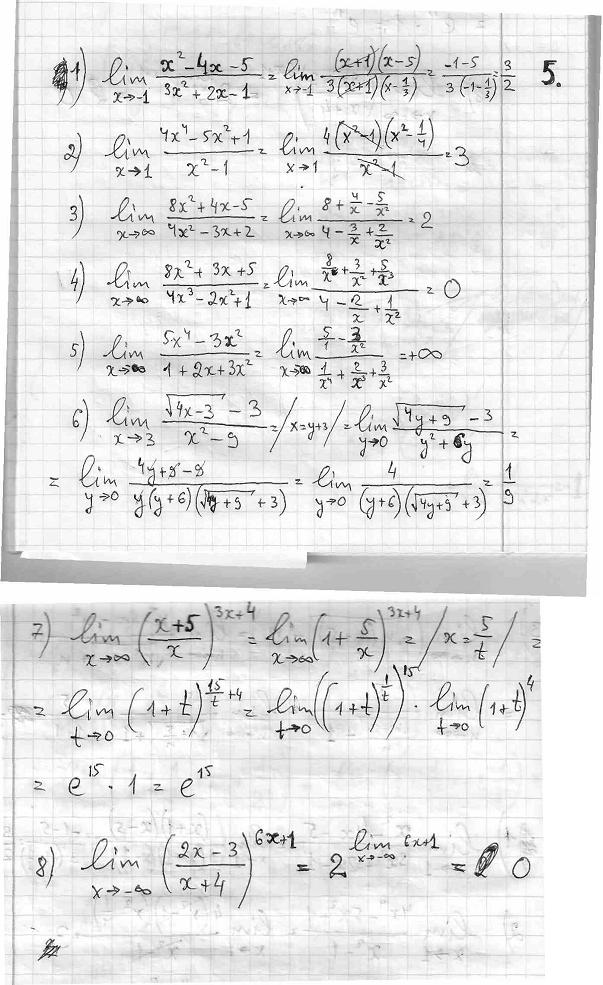 1) lim x→-1 (x² - 4x - 5)/(3x² + 2x - 1) = lim x→-1 ((x+1)(x-5))/(3(x+1)(x-1/3)) = (-1-5)/(3(-1-1/3)) = 3/2 5.
2) lim x→1 (4x⁴ - 5x² + 1)/(x² - 1) = lim x→1 (4(x²-1)(x²-1/4))/(x²-1) = 3
3) lim x→∞ (8x² + 4x - 5)/(4x² - 3x + 2) = lim x→∞ (8 + 4/x - 5/x²)/(4 - 3/x + 2/x²) = 2
4) lim x→∞ (8x² + 3x + 5)/(4x³ - 2x² + 1) = lim x→∞ (8/x + 3/x² + 5/x³)/(4 - 2/x + 1/x²) = 0
5) lim x→∞ (5x⁴ - 3x²)/(1 + 2x + 3x²) = lim x→∞ (5/1 - 3/x²)/(1/x⁴ + 2/x³ + 3/x²) = +∞
6) lim x→3 (√(4x-3) - 3)/(x² - 9) = /x=y+3/ = lim y→0 (√(4y+9) - 3)/(y² + 6y) =
= lim y→0 (4y+9-9)/(y(y+6)(√(4y+9) + 3)) = lim y→0 4/((y+6)(√(4y+9) + 3)) = 1/9
7) lim x→∞ ((x+5)/x)^(3x+4) = lim x→∞ (1 + 5/x)^(3x+4) = /x = 5/t/ =
= lim t→0 (1+t)^(15/t + 4) = lim t→0 ((1+t)^(1/t))^15 · lim t→0 (1+t)^4
= e^15 · 1 = e^15
8) lim x→-∞ ((2x-3)/(x+4))^(6x+1) = 2^(lim x→-∞ 6x+1) = 0